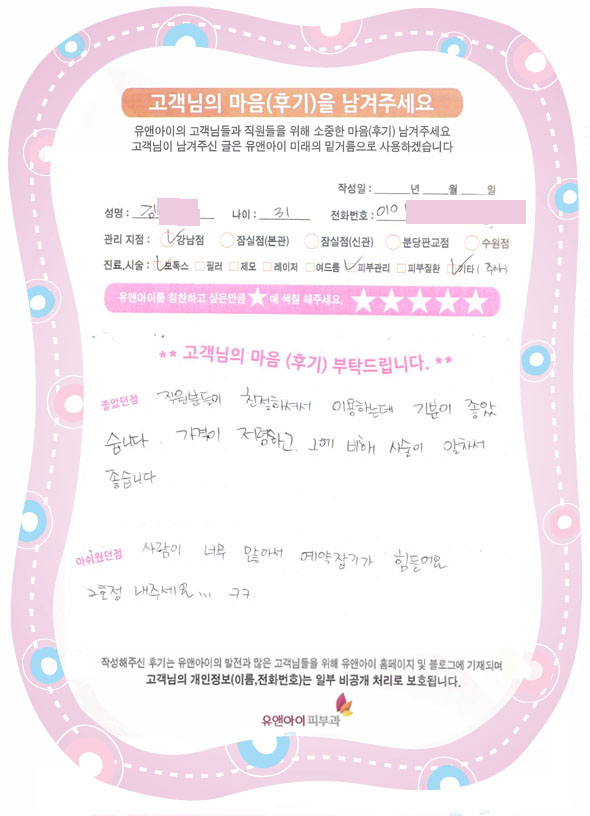 고객님의 마음(후기)을 남겨주세요
유앤아이의 고객님들과 직원들을 위해 소중한 마음(후기) 남겨주세요
고객님이 남겨주신 글은 유앤아이 미래의 밑거름으로 사용하겠습니다
작성일 : 년 월 일
성명 : 김 나이 : 31 전화번호 : 010
관리 지점 : 강남점 잠실점(본관) 잠실점(신관) 분당판교점 수원점
진료,시술 : 보톡스 필러 제모 레이저 여드름 피부관리 피부질환 기타 ( 주사)
유앤아이를 칭찬하고 싶은만큼 ★ 에 색칠 해주세요. ★★★★★
** 고객님의 마음 (후기) 부탁드립니다. **
좋았던점 직원분들이 친절하셔서 이용하는데 기분이 좋았
습니다. 가격이 저렴하고, 그에 비해 시술이 알차서
좋습니다
아쉬웠던점 사람이 너무 많아서 예약잡기가 힘들어요
2호점 내주세요... ㅋㅋ.
작성해주신 후기는 유앤아이의 발전과 많은 고객님들을 위해 유앤아이 홈페이지 및 블로그에 기재되며
고객님의 개인정보(이름,전화번호)는 일부 비공개 처리로 보호됩니다.
유앤아이피부과